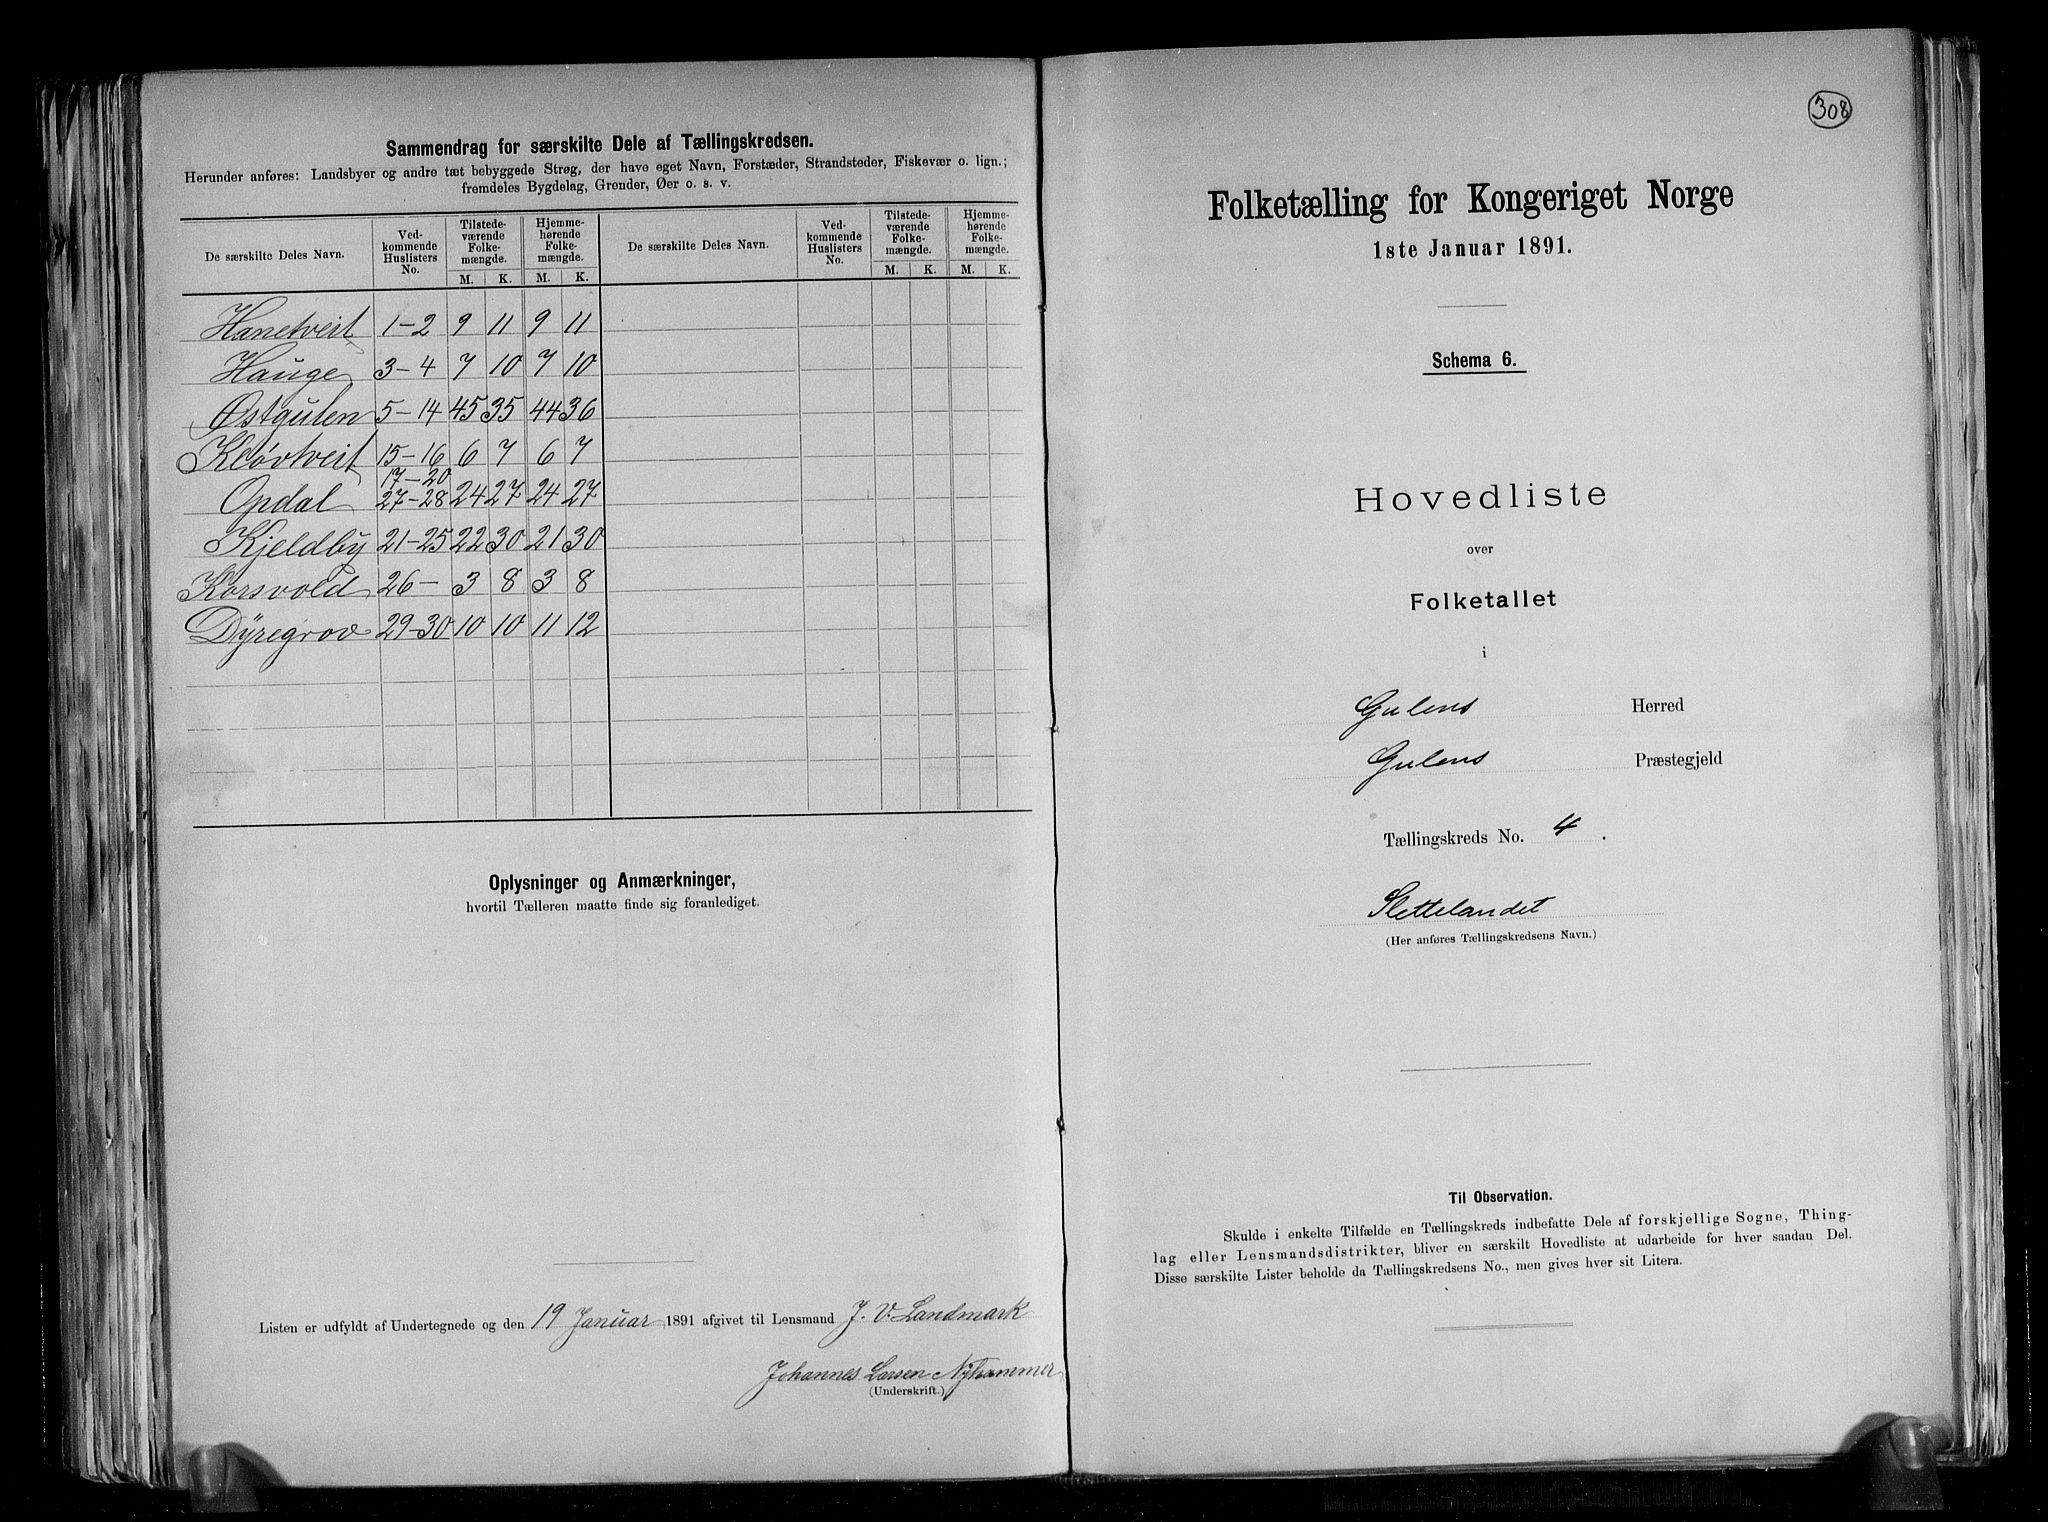 Sammendrag for særskilte Dele af Tællingskredsen.
Herunder anføres: Landsbyer og andre tæt bebyggede Strøg, der have eget Navn, Forstæder, Strandsteder, Fiskevær o. lign.;
fremdeles Bygdelag, Grender, Øer o. s. v.
De særskilte Deles Navn. Ved-kommende Huslisters No. Tilstede-værende Folke-mængde. Hjemme-hørende Folke-mængde. De særskilte Deles Navn. Ved-kommende Huslisters No. Tilstede-værende Folke-mængde. Hjemme-hørende Folke-mængde.
M. K. M. K. M. K. M. K.
Hanetveit 1-2 9 11 9 11
Hauge 3-4 7 10 7 10
Østgulen 5-14 45 35 44 36
Kløvtveit 15-16 6 7 6 7
17-20
Opdal 27-28 24 27 24 27
Kjeldby 21-25 22 30 21 30
Korsvold 26- 3 8 3 8
Dyregrov 29-30 10 10 11 12
Oplysninger og Anmærkninger,
hvortil Tælleren maatte finde sig foranlediget.
Listen er udfyldt af Undertegnede og den 19 Januar 1891 afgivet til Lensmand J. V. Landmark
Johannes Larsen Nyhammer
(Underskrift.)
308
Folketælling for Kongeriget Norge
1ste Januar 1891.
Schema 6.
Hovedliste
over
Folketallet
i
Gulens Herred
Gulens Præstegjeld
Tællingskreds No. 4.
Slettelandet
(Her anføres Tællingskredsens Navn.)
Til Observation.
Skulde i enkelte Tilfælde en Tællingskreds indbefatte Dele af forskjellige Sogne, Thing-
lag eller Lensmandsdistrikter, bliver en særskilt Hovedliste at udarbeide for hver saadan Del.
Disse særskilte Lister beholde da Tællingskredsens No., men gives hver sit Litera.